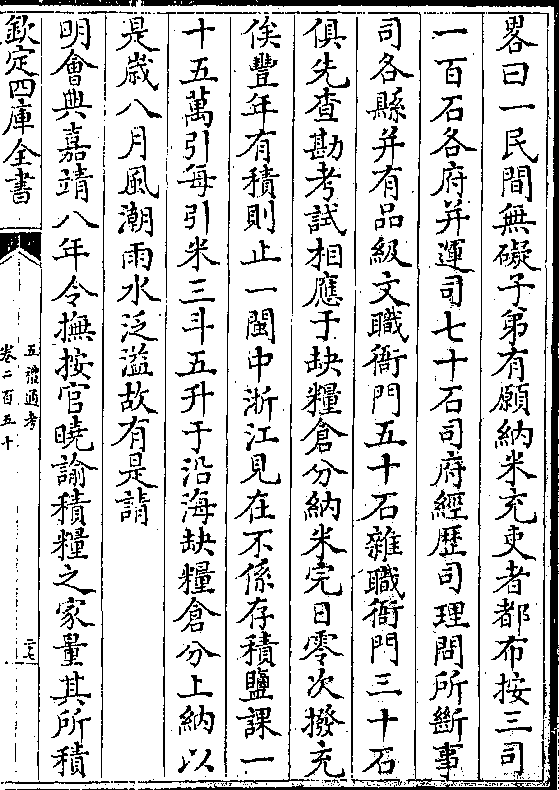 畧曰一民間無礙子弟有願納米充吏者都布按三司
一百石各府并運司七十石司府經歷司理問所斷事
司各縣并有品級文職衙門五十石雜職衙門三十石
俱先查勘考試相應于缺糧倉分納米完日零次撥充
俟豐年有積則止一閩中浙江見在不係存積鹽課一
十五萬引每引米三斗五升于沿海缺糧倉分上納以
是歲八月風潮雨水泛溢故有是請
明會典嘉靖八年令撫按官曉諭積糧之家量其所積
欽定四庫全書
五禮通考
卷二百五十
二七